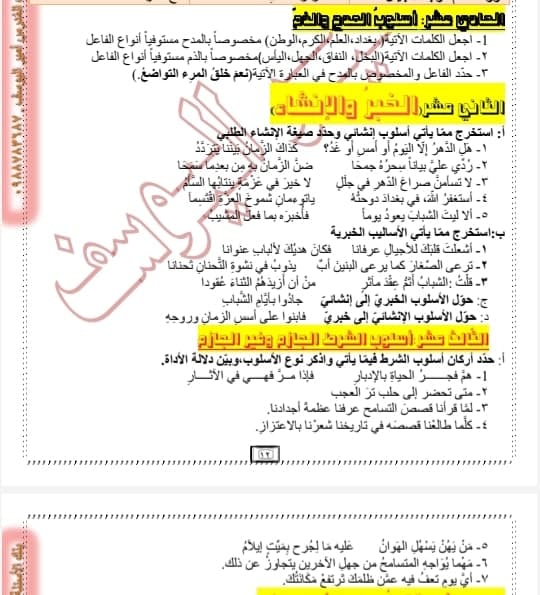 الحادي عشر: أسلوبُ المدح والذمّ
١- اجعل الكلمات الآتية(بغداد،العلم،الكرم،الوطن) مخصوصاً بالمدح مستوفياً أنواع الفاعل
٢- اجعل الكلمات الآتية(البخل، النفاق،الجهل،اليأس)مخصوصاً بالذم مستوفياً أنواع الفاعل
٣- حدّد الفاعل والمخصوص بالمدح في العبارة الآتية(نعمَ خلقُ المرءِ التواضعُ.)
الثاني عشر(الخبرُ والإنشاء)
أ: استخرج ممّا يأتي أسلوب إنشائي وحدّد صيغة الإنشاء الطلبي
١- هل الدهرُ إلّا اليومُ أو أمسِ أو غدُ؟ كذاكَ الزمانُ بيننا يتردّدُ
٢- رُدّي عليَّ بياناً سحرُهُ جمحَا ضنَّ الزمانُ بهِ من بعدما سمَحَا
٣- لا تسأمنَّ صراعَ الدهرِ في جللٍ لا خيرَ في عزْمةٍ ينتابُها السأَمُ
٤- أستغفرُ اللهَ، في بغدادَ دوحتُهُ ياتوءمانِ شموخَ العزّةِ اقتسما
٥- ألا ليتَ الشبابَ يعودُ يوماً فأُخبرَه بما فعلَ المَشيبُ
ب:استخرج ممّا يأتي الأساليب الخبرية
١- أشعلتَ قلبَكَ للأجيالِ عرفانا فكانَ هديُكَ لألبابِ عنوانا
٢- ترعى الصّغارَ كما يرعى البنينَ أبٌ يذوبُ في نشوةِ التّحنانِ تَحنانا
٣- قلتُ :الشبابُ أنتُمُ عِقدُ مآثرٍ منْ أن أزيدَهُمُ الثناءَ عُقودا
ج: حوّل الأسلوب الخبري إلى إنشائيّ جادُوا بأيّامِ الشّبابِ
د: حوّل الأسلوب الإنشائي إلى خبري فابنوا على أسسِ الزمانِ وروحِهِ
الثالث عشر:أسلوب الشرط الجازم وغير الجازم
أ: حدّد أركان أسلوب الشرط فيما يأتي واذكر نوع الأسلوب،وبيّن دلالة الأداة.
١- همَّ فجرُ الحياةِ بالإدبارِ فإذا مرَّ فهي في الآثارِ
٢- متى تحضر إلى حلب ترَ العجب
٣- لمّا قرأنا قصصَ التسامح عرفنا عظمةَ أجدادنا.
٤- كلّما طالعْنا قصصَه في تاريخنا شعرْنا بالاعتزازِ.
١٢
٥- مَنْ يَهُنْ يَسْهُلِ الهَوانُ عَليهِ مَا لِجُرحٍ بِمَيّتٍ إيلامُ
٦- مَهْما يُواجِهِ المتسامحُ من جهلِ الآخرين يتجاوزْ عن ذلك.
٧- أيَّ يومٍ تعفُ فيه عمّن ظلمَكَ ترتفعْ مكانَتُكَ.